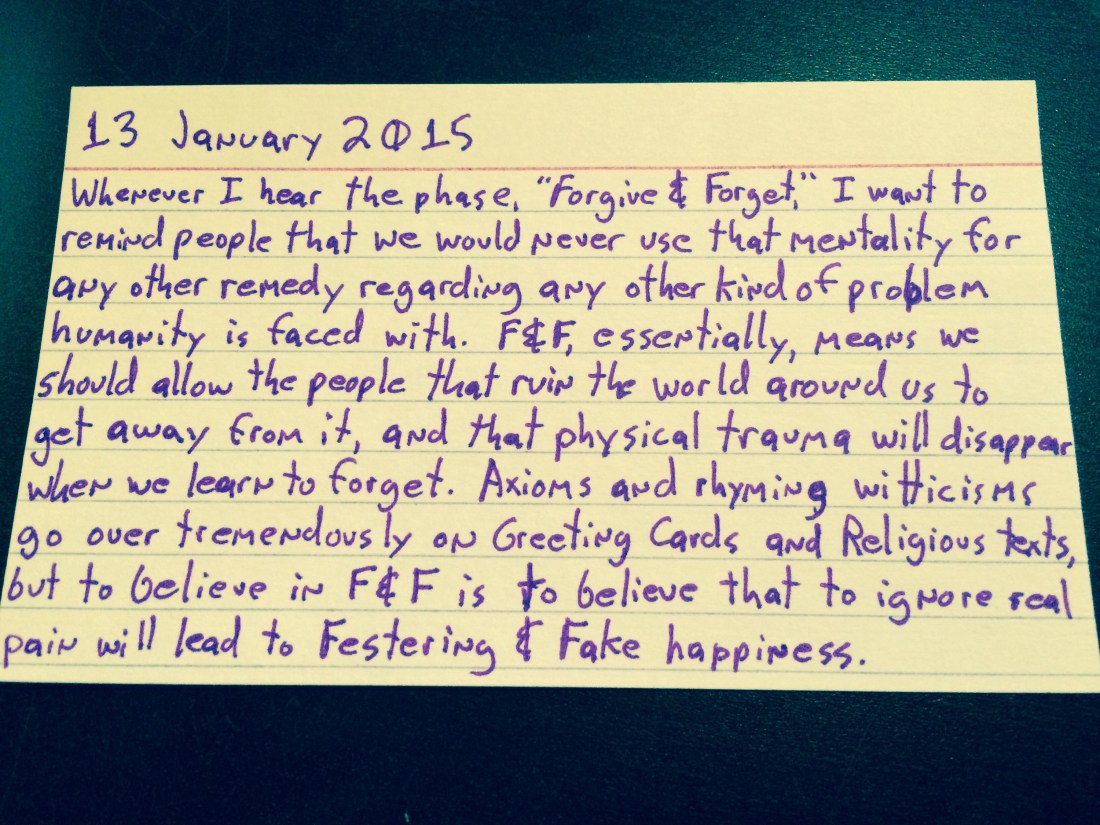 13 January 2015
Whenever I hear the phase, "Forgive & Forget," I want to
remind people that we would never use that mentality for
any other remedy regarding any other kind of problem
humanity is faced with. F&F, essentially, means we
should allow the people that ruin the world around us to
get away from it, and that physical trauma will disappear
when we learn to forget. Axioms and rhyming witticisms
go over tremendously on Greeting Cards and Religious texts,
but to believe in F&F is to believe that to ignore real
pain will lead to Festering & Fake happiness.